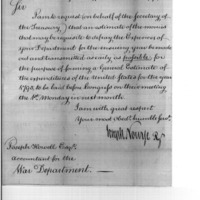 Sir
I am to request (on behalf of the Secretary of
the Treasury) that an estimate of the monies
that may be requisite to defray the Expences of
your Department for the ensuing year be made
out and transmitted as early as possible for
the purpose of forming a General Estimate of
the expenditures of the United States for the year
1793, to be laid before Congress on their meeting
the 1st Monday in next month.
I am with great respect
Your most Obed. humble Serv.
Joseph Nourse Rg
Joseph Howell Esqr.
accountant for the
War Department. —